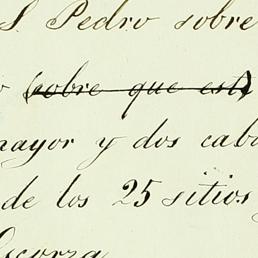 S. Pedro sobre
(sobre que est)
mayor y dos cab
de los 25 sitios
Escorza